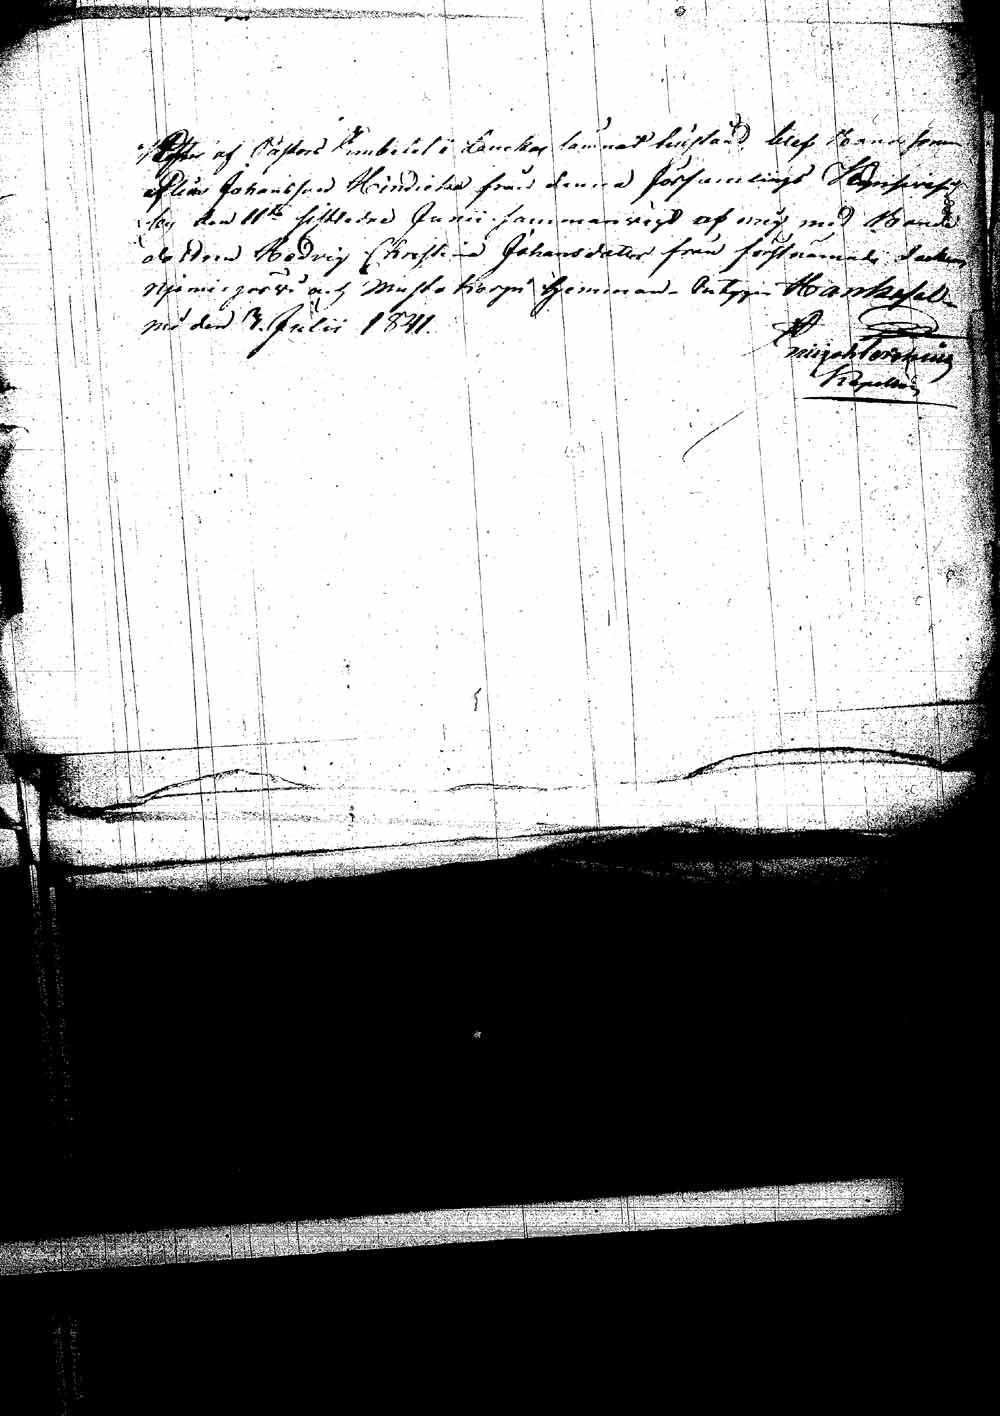 Efter af Pastors Embetet i lemnat tillstånd, blef Bonde sonen
Elias Johansson Hindicka från denna församlings
by den 11te sistledne Junii sammanvigd af mig med Bonde
dottren Hedvig Christina Johansdotter från förstnämnde Socken
och Musta Korpi hemman. Hankasal-
mi den 3 Julii 1841.
Kapellan